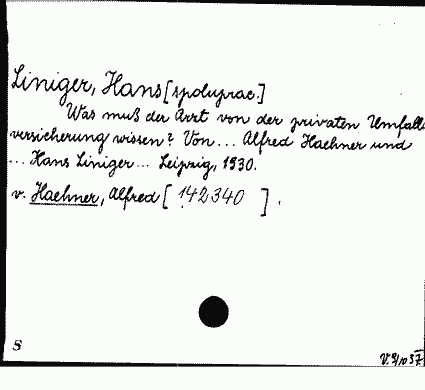 Liniger, Hans [spoluprac.]
Was muß der Arzt von der privaten Unfall-
versicherung wissen? Von ... Alfred Haehner und
... Hans Liniger ... Leipzig, 1930.
v. Haehner, Alfred [ 142340 ] .
S
V. 9/10 37